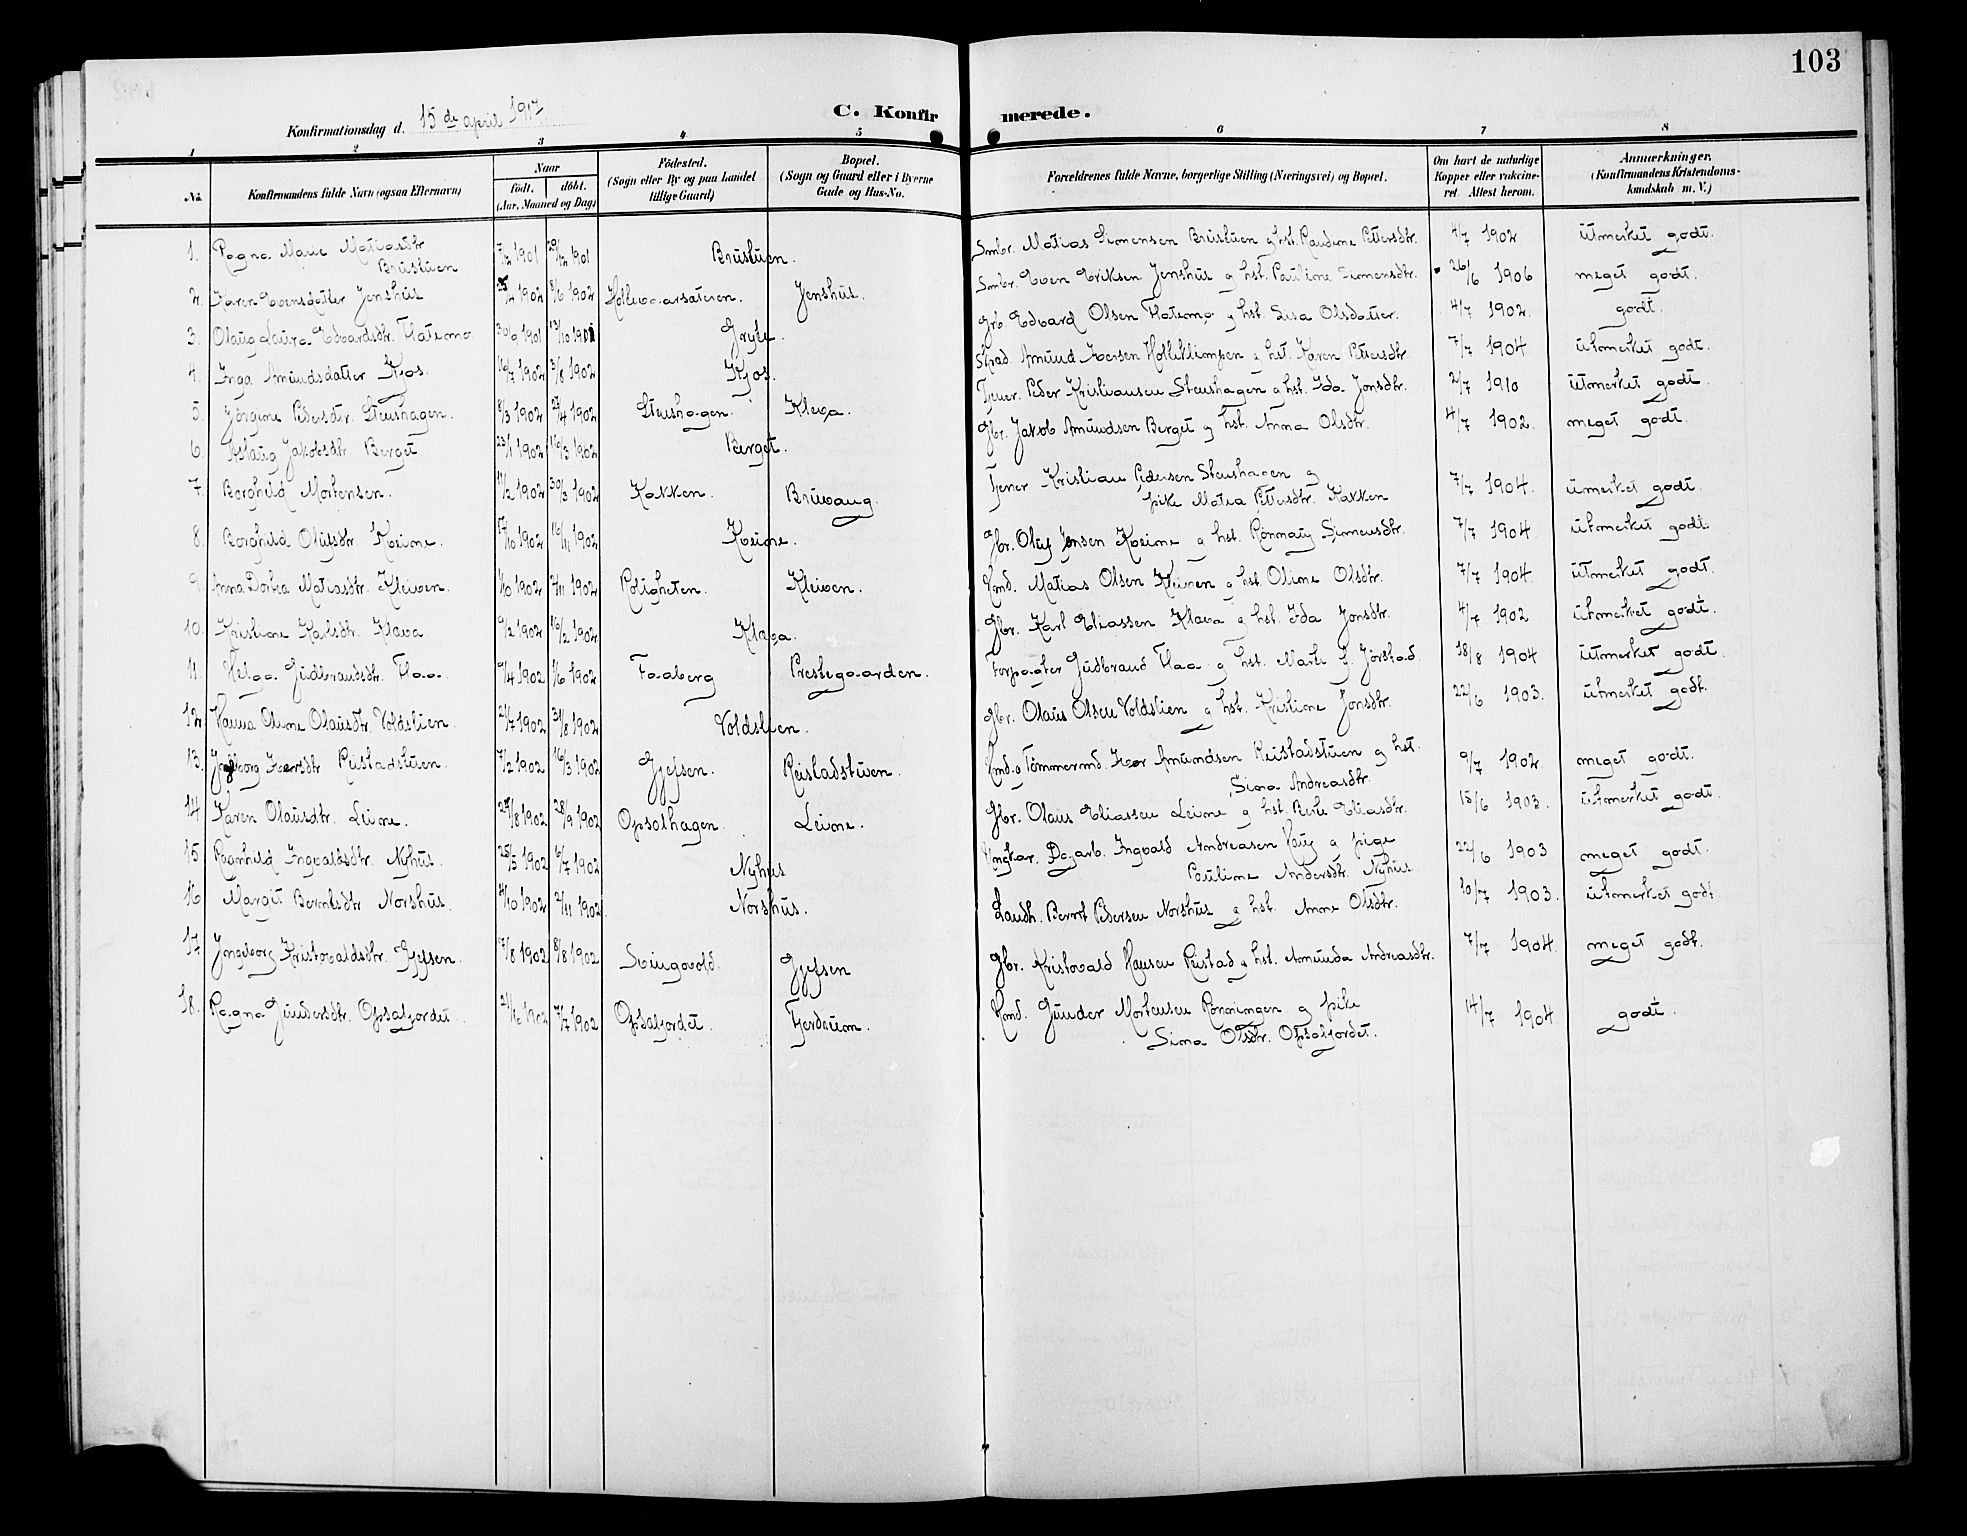 103
Konfirmationsdag d. 15 de april 1917
C. Konfirmerede.
1 2 3 4 5 6 7 8
No.
Konfirmandens fulde Navn (ogsaa Efternavn)
Naar
födt. döbt.
(Aar, Maaned og Dag)
Födested.
(Sogn eller By og paa Landet
tillige Gaard)
Bopæl.
(Sogn og Gaard eller i Byerne
Gade og Hus-No.
Forældrenes fulde Navne, borgerlige Stilling (Næringsvei) og Bopæl.
Om havt de naturlige
Kopper eller vaccine-
ret. Attest herom.
Anmærkninger.
(Konfirmandens Kristendoms-
kundskab m. V.)
1. Ragna Marie Matiasdtr Brustuen 7/12 1901 29/12 1901 Brustuen. Smbr. Matias Simensen Brustuen g hst. Randine Pettersdtr. 4/7 1902 utmerket godt.
2. Karen Evensdatter Jenshus 25/4 1902 8/6 1902 Jenshus. Smbr. Even Eriksen Jenshus g hst. Pauline Simensdtr. 26/6 1906 meget godt.
3. Olaug Laura Edvardsdtr. Flatemo 30/9 1901 13/10 1901 Gryte. Edvard Olsen Flatemo g hst. Lisa Olsdatter. 4/7 1902. godt.
4. Inga Amundsdatter Kjos. 16/7 1902 3/8 1902 Kjos. Amund Iversen Holleklimpen g hst. Karen Pettersdtr. 7/7 1904 utmerket godt.
5. Jörgine Pedersdtr. Steishagen. 8/3 1902 27/4 1902 Steishagen. Kleva. Tjener. Peder Kristiansen Steishagen g hst. Ida Jonsdtr. 2/7 1910 utmerket godt
6. Aslaug Jakobsdtr. Berget 23/1 1902 16/3 1902 Berget. Gbr. Jakob Amundsen Berget g hst. Anna Olsdtr. 4/7 1902. meget godt.
7. Borghild Mortensen. 11/2 1902 30/3 1902 Kakken. Bruvang. Tjener Kristian Pedersen Steishagen g
pike Matea Pettersdtr. Kakken 7/7 1904. utmerket godt.
8. Borghild Olufsdtr. Kveine. 17/10 1902 16/11 1902 Kveine. Gbr. Oluf Jensen Kveine g hst. Rönnaug Simensdtr. 7/7 1904 utmerket godt
9. Anna Dortea Matiasdtr. Kleiven. 1/10 1902 2/11 1902 Roligheten. Kleiven. Matias Olsen Kleiven g hst. Oline Olsdtr. 7/7 1904. utmerket godt.
10. Kristiane Karlsdtr. Klava 9/2 1902 16/2 1902 Klava. Gbr. Karl Eliassen Klava g hst. Ida Jonsdtr. 4/7 1902 utmerket godt.
11. Helga Gudbrandsdtr. Flaa. 9/4 1902 1/6 1902 Faaberg Prestegaarden. Forpagter Gudbrand Flaa g hst. Marte G. Jörstad. 18/8 1904 utmerket godt.
12. Hanna Oline Olausdtr. Voldslien. 21/7 1902 31/8 1902 Voldslien. Gbr. Olaus Olsen Voldslien g hst. Kristine Jonsdtr. 22/6 1903. utmerket godt.
13. Ingeborg Iversdtr Reistadstuen. 7/2 1902 16/3 1902 Gjefsen. Reistadstuen. Tömmermd. Iver Amundsen Reistadstuen g hst.
Sina Andreasdtr. 9/7 1902. meget godt.
14 Karen Olausdtr. Leine. 29/8 1902 28/9 1902 Opsalhagen. Leine. Gbr. Olaus Eliassen Leine g hst. Berte Eliasdtr. 15/6 1903. utmerket godt
15 Ragnhild Ingvaldsdtr. Nyhus. 25/5 1902 6/7 1902 Nyhus Ungkar. Dagarb. Ingvald Andreasen Haug g pige
Pauline Andersdtr. Nyhus 22/6 1903 meget godt.
16 Margit Berntsdtr Norshus. 4/10 1902 2/11 1902. Norshus. Landh. Bernt Pedersen Norshus g hst. Anne Olsdtr. 10/7 1903. utmerket godt
17 Ingeborg Kristovaldsdtr. Gjefsen. 17/8 1902 8/8 1902 Svingvold. Gjefsen Gbr. Kristovald Hansen Reistad g hst. Amunda Andreasdtr. 7/7 1904. meget godt.
18. Ragna Gundersdtr. Opsaljordet. 21/6 1902 7/7 1902 Opsaljordet. Fjerdum. Gunder Mortensen Rönningen g pike
Sina Olsdtr. Opsaljordet. 14/7 1904 godt.